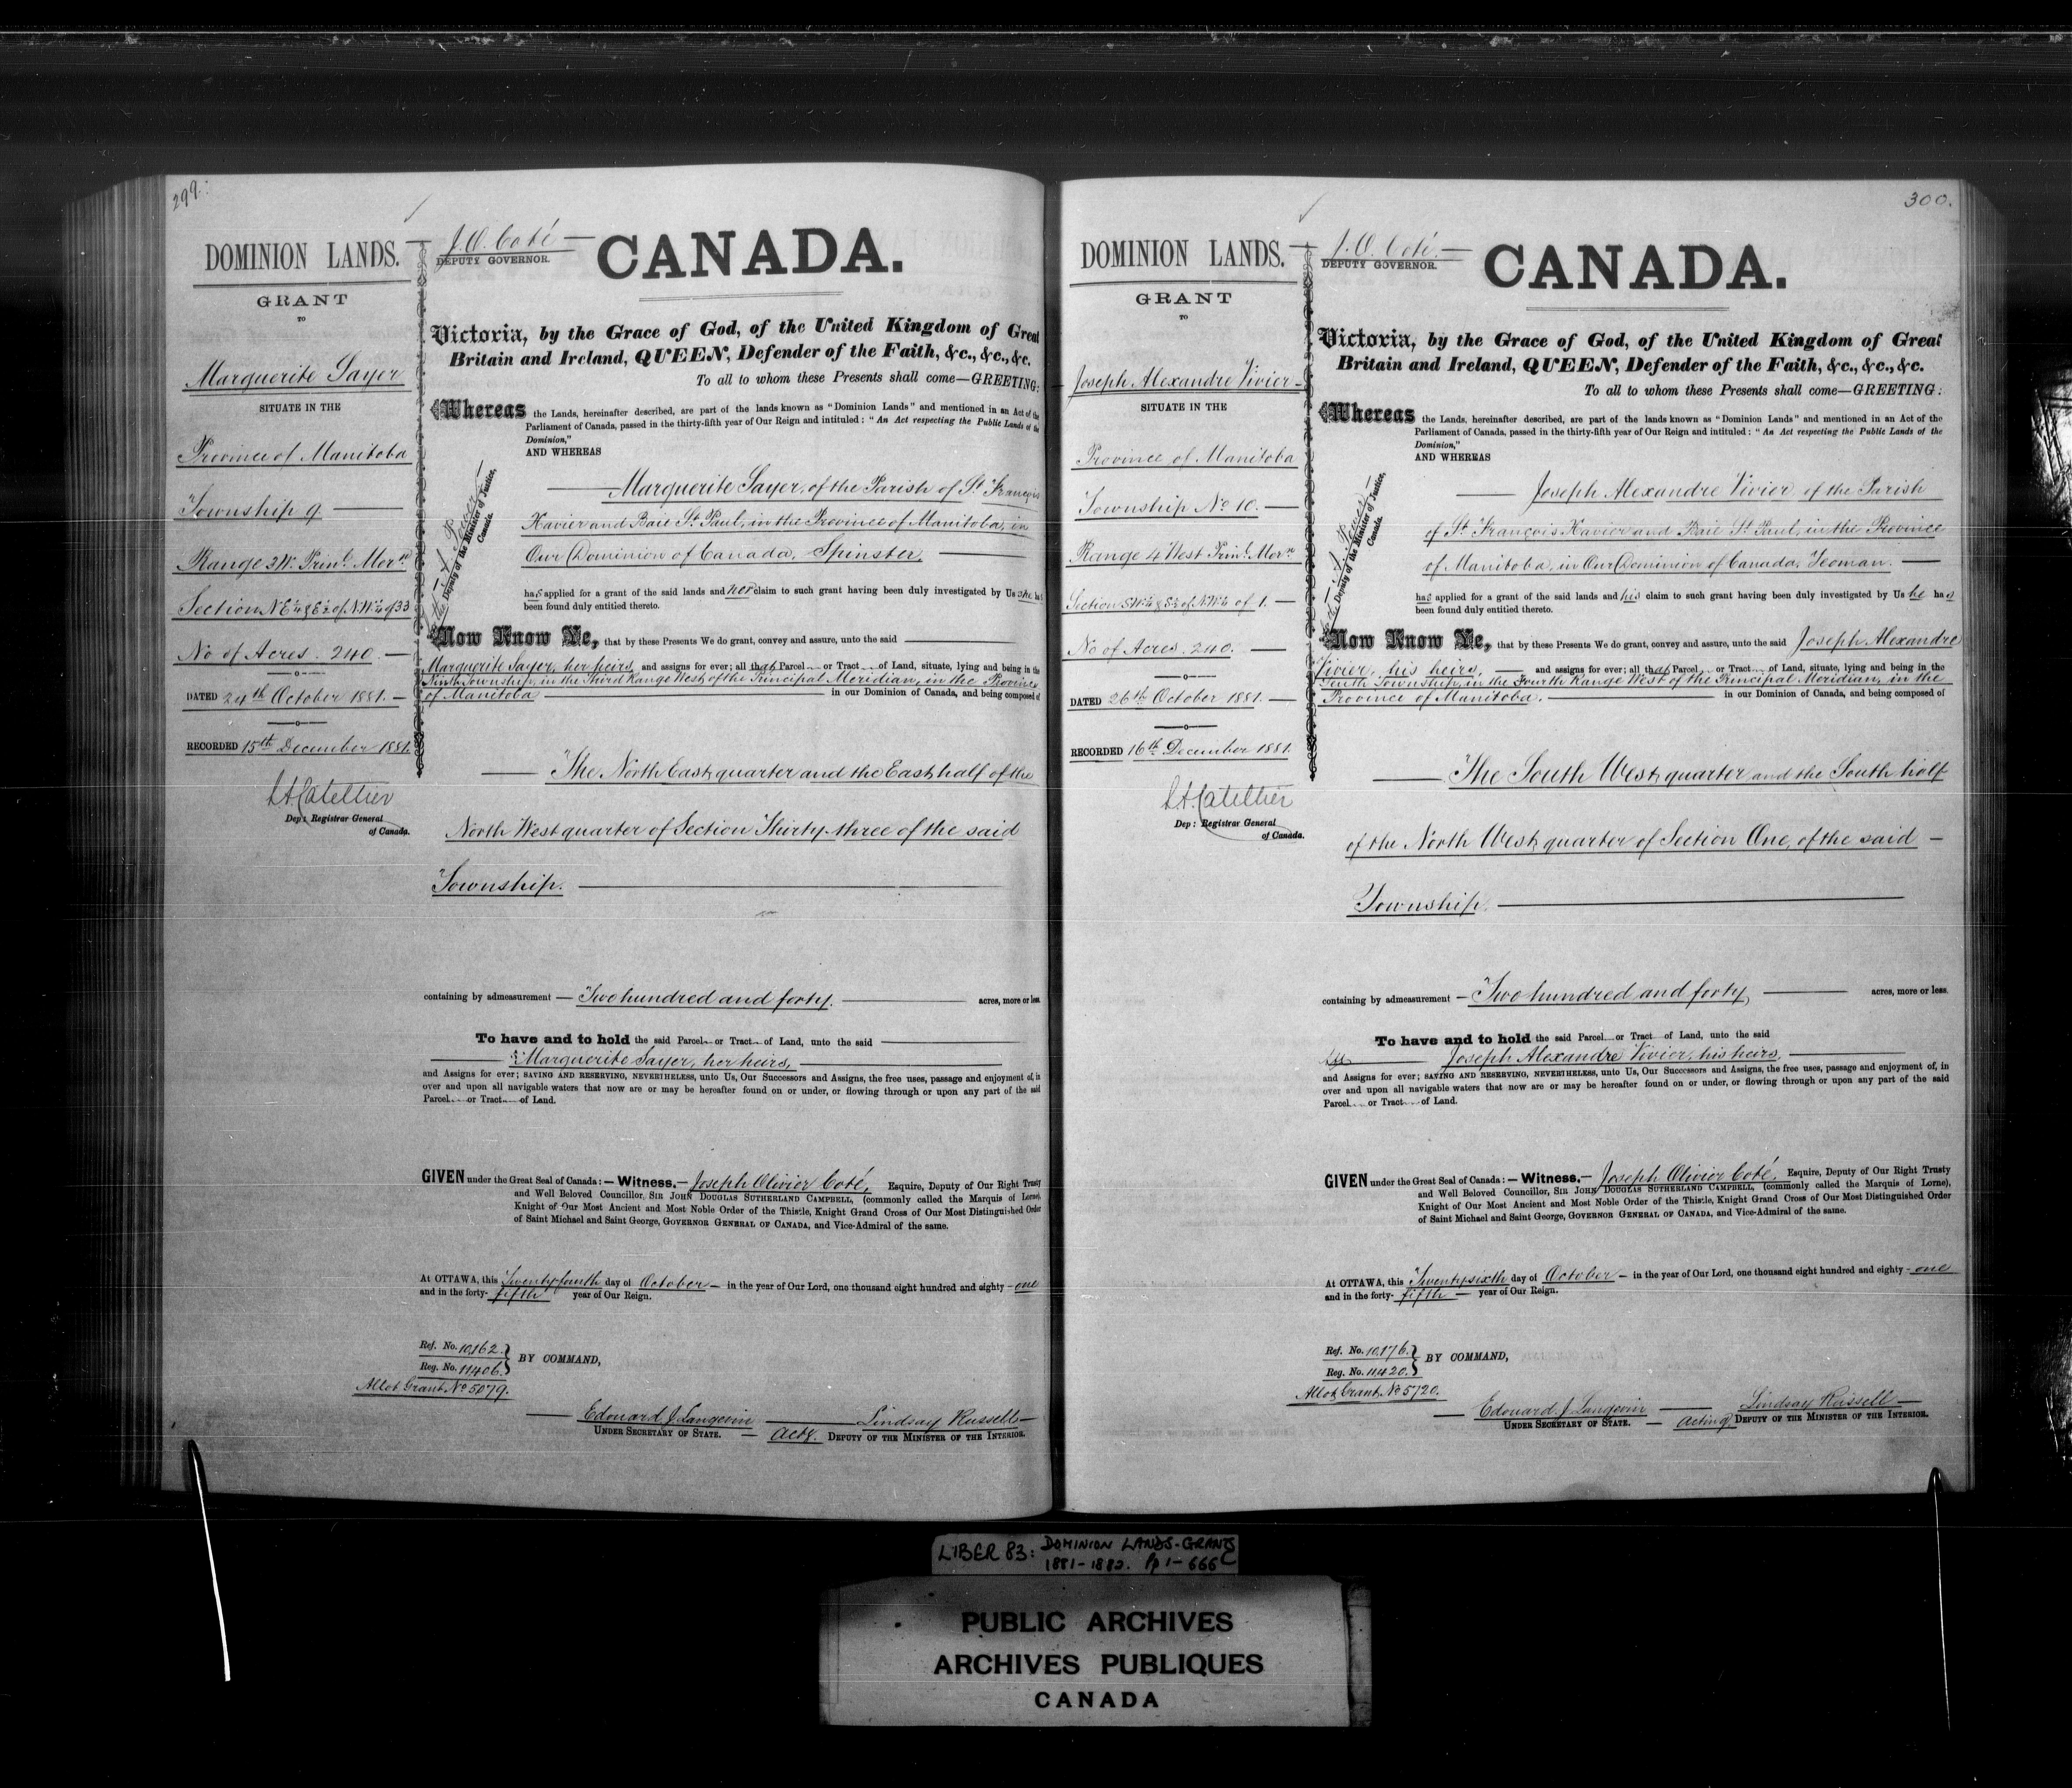 299.
DOMINION LANDS.
GRANT
TO
Marguerite Sayer
SITUATE IN THE
Province of Manitoba
Township 9
Range 3 W. Prinl. Mern.
Section N.E¼ & E½ of N.W¼ of 33
No of Acres. 240
DATED 24th October 1881.
RECORDED 15th December 1881.
Dep: Registrar General
of Canada.
J. O. Coté
DEPUTY GOVERNOR.
CANADA.
Victoria, by the Grace of God, of the United Kingdom of Great
Britain and Ireland, QUEEN, Defender of the Faith, &c., &c., &c.
To all to whom these Presents shall come—GREETING:
Whereas the Lands, hereinafter described, are part of the lands known as "Dominion Lands" and mentioned in an Act of the
Parliament of Canada, passed in the thirty-fifth year of Our Reign and intituled: "An Act respecting the Public Lands of the
Dominion,"
AND WHEREAS
Deputy of the Minister of Justice,
Canada.
Marguerite Sayer, of the Parish of St. François
Xavier and Baie St. Paul, in the Province of Manitoba, in
Our Dominion of Canada, Spinster,
has applied for a grant of the said lands and her claim to such grant having been duly investigated by Us she has
been found duly entitled thereto.
Now Know Ye, that by these Presents We do grant, convey and assure, unto the said
Marguerite Sayer, her heirs, and assigns for ever; all that Parcel or Tract of Land, situate, lying and being in the
Ninth Township, in the Third Range West of the Principal Meridian, in the Province
of Manitoba in our Dominion of Canada, and being composed of
The North East quarter and the East half of the
North West quarter of Section Thirty-three of the said
Township.
containing by admeasurement — Two hundred and forty. acres, more or less
To have and to hold the said Parcel or Tract of Land, unto the said
Marguerite Sayer, her heirs,
and Assigns for ever; SAVING AND RESERVING, NEVERTHELESS, unto Us, Our Successors and Assigns, the free uses, passage and enjoyment of, in
over and upon all navigable waters that now are or may be hereafter found on or under, or flowing through or upon any part of the said
Parcel or Tract of Land.
GIVEN under the Great Seal of Canada:—Witness,—Joseph Olivier Coté, Esquire, Deputy of Our Right Trusty
and Well Beloved Councillor, SIR JOHN DOUGLAS SUTHERLAND CAMPBELL, (commonly called the Marquis of Lorne),
Knight of Our Most Ancient and Most Noble Order of the Thistle, Knight Grand Cross of Our Most Distinguished Order
of Saint Michael and Saint George, GOVERNOR GENERAL OF CANADA, and Vice-Admiral of the same.
At OTTAWA, this Twenty fourth day of October — in the year of Our Lord, one thousand eight hundred and eighty-one
and in the forty-fifth year of Our Reign.
Ref. No. 10,162.
Reg. No. 11406.
BY COMMAND,
Allot. Grant. No 5079.
Edouard J. Langevin
UNDER SECRETARY OF STATE.
Lindsay Russell
Actg. DEPUTY OF THE MINISTER OF THE INTERIOR.
300.
DOMINION LANDS.
GRANT
TO
Joseph Alexandre Vivier
SITUATE IN THE
Province of Manitoba
Township No 10.
Range 4 West Prinl. Mern.
Section S.W¼ & S½ of N.W¼ of 1.
No of Acres. 240.
DATED 26th October 1881.
RECORDED 16th December 1881.
Dep: Registrar General
of Canada.
J. O. Coté.
DEPUTY GOVERNOR.
CANADA.
Victoria, by the Grace of God, of the United Kingdom of Great
Britain and Ireland, QUEEN, Defender of the Faith, &c., &c., &c.
To all to whom these Presents shall come—GREETING:
Whereas the Lands, hereinafter described, are part of the lands known as "Dominion Lands" and mentioned in an Act of the
Parliament of Canada, passed in the thirty-fifth year of Our Reign and intituled: "An Act respecting the Public Lands of the
Dominion,"
AND WHEREAS
Deputy of the Minister of Justice,
Canada.
Joseph Alexandre Vivier, of the Parish
of St. François Xavier and Baie St. Paul, in the Province
of Manitoba, in Our Dominion of Canada, Yeoman.
has applied for a grant of the said lands and his claim to such grant having been duly investigated by Us he has
been found duly entitled thereto.
Now Know Ye, that by these Presents We do grant, convey and assure, unto the said Joseph Alexandre
Vivier, his heirs, and assigns for ever; all that Parcel or Tract of Land, situate, lying and being in the
Tenth Township, in the Fourth Range West of the Principal Meridian, in the
Province of Manitoba. in our Dominion of Canada, and being composed of
The South West quarter and the South half
of the North West quarter of Section One, of the said
Township.
containing by admeasurement — Two hundred and forty, acres, more or less.
To have and to hold the said Parcel or Tract of Land, unto the said
Joseph Alexandre Vivier, his heirs,
and Assigns for ever; SAVING AND RESERVING, NEVERTHELESS, unto Us, Our Successors and Assigns, the free uses, passage and enjoyment of, in
over and upon all navigable waters that now are or may be hereafter found on or under, or flowing through or upon any part of the said
Parcel or Tract of Land.
GIVEN under the Great Seal of Canada:—Witness,—Joseph Olivier Coté, Esquire, Deputy of Our Right Trusty
and Well Beloved Councillor, SIR JOHN DOUGLAS SUTHERLAND CAMPBELL, (commonly called the Marquis of Lorne),
Knight of Our Most Ancient and Most Noble Order of the Thistle, Knight Grand Cross of Our Most Distinguished Order
of Saint Michael and Saint George, GOVERNOR GENERAL OF CANADA, and Vice-Admiral of the same.
At OTTAWA, this Twenty sixth day of October — in the year of Our Lord, one thousand eight hundred and eighty-one
and in the forty-fifth — year of Our Reign.
Ref. No. 10,176.
Reg. No. 11420.
BY COMMAND,
Allot. Grant. No 5120.
Edouard J. Langevin
UNDER SECRETARY OF STATE.
Lindsay Russell
Acting DEPUTY OF THE MINISTER OF THE INTERIOR.
LIBER 83: DOMINION LANDS-GRANTS
1881-1882. Pp 1-666
PUBLIC ARCHIVES
ARCHIVES PUBLIQUES
CANADA